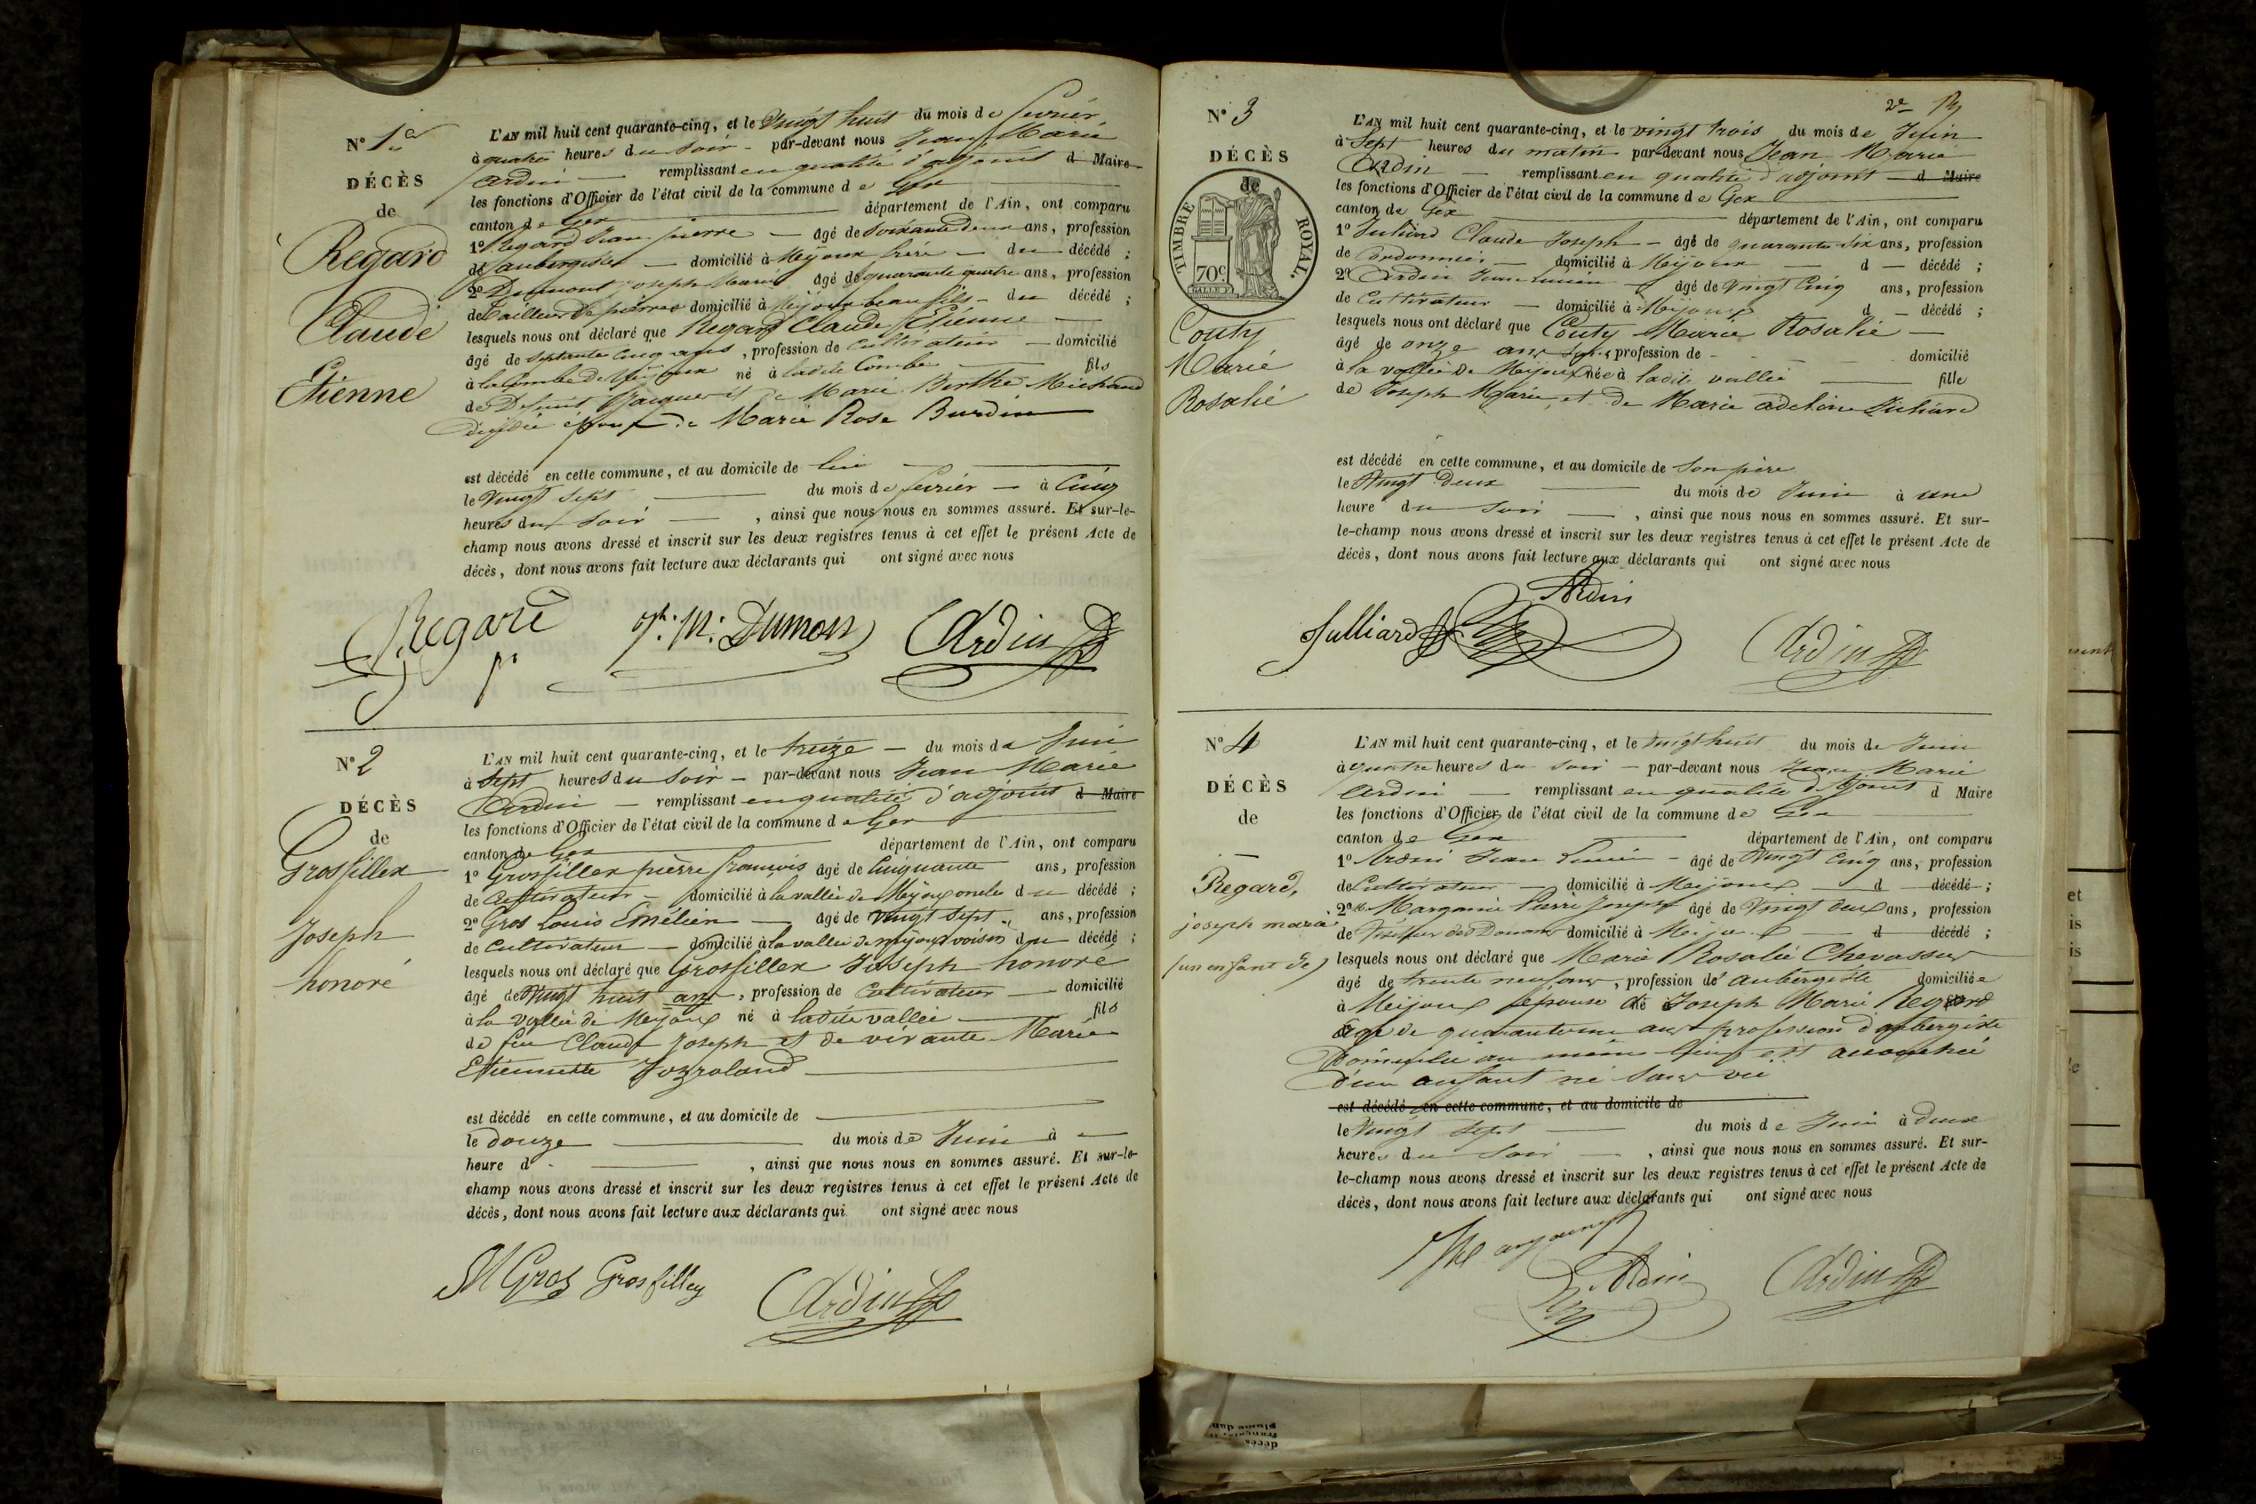 N° 1er
DÉCÈS
de
Regard
Claude
Etienne
L'AN mil huit cent quarante-cinq, et le vingt huit du mois de fevrier
à quatre heures du soir - par-devant nous Jean Marie
Ardin — remplissant en qualité d'adjoint d Maire
les fonctions d'Officier de l'état civil de la commune de Gex
canton de Gex département de l'Ain, ont comparu
1° Regard Jean pierre — âgé de soixante deux ans, profession
de aubergiste — domicilié à Mijoux frère - du décédé ;
2° Dumont joseph Marie âgé de quarante quatre ans, profession
de tailleur de pierres domicilié à Mijoux beau fils - du décédé ;
lesquels nous ont déclaré que Regard Claude Etienne —
âgé de septante cinq ans, profession de cultivateur — domicilié
à la Combe de Mijoux né à ladite Combe — fils
de Defunt Jacques et de Marie Berthe Michaud
décédée époux de Marie Rose Burdin
est décédé en cette commune, et au domicile de lui
le vingt sept — du mois de fevrier — à cinq
heures du soir — , ainsi que nous nous en sommes assuré. Et sur-le-
champ nous avons dressé et inscrit sur les deux registres tenus à cet effet le présent Acte de
décès, dont nous avons fait lecture aux déclarants qui ont signé avec nous
Regard jph. M. Dumont Ardin
N° 2
DÉCÈS
de
Grosfillex
Joseph
honoré
L'AN mil huit cent quarante-cinq, et le treize — du mois de Juin
à sept heures du soir - par-devant nous Jean Marie
Ardin — remplissant en qualité d'adjoint d Maire
les fonctions d'Officier de l'état civil de la commune de Gex
canton de Gex département de l'Ain, ont comparu
1° Grosfillex pierre françois âgé de cinquante ans, profession
de cultivateur — domicilié à la vallée de Mijoux oncle du décédé ;
2° Gros Louis Emélien — âgé de vingt sept ans, profession
de cultivateur — domicilié à la vallée de mijoux voisin du décédé ;
lesquels nous ont déclaré que Grosfillex Joseph honoré
âgé de vingt huit ans, profession de cultivateur — domicilié
à la vallée de Mijoux né à ladite vallée — fils
de feu Claude Joseph et de vivante Marie
Etiennette
est décédé en cette commune, et au domicile de
le douze — du mois de Juin à —
heure d - — , ainsi que nous nous en sommes assuré. Et sur-le-
champ nous avons dressé et inscrit sur les deux registres tenus à cet effet le présent Acte de
décès, dont nous avons fait lecture aux déclarants qui ont signé avec nous
Gros Grosfilley Ardin
2e
N° 3
DÉCÈS
de
TIMBRE ROYAL.
70c
Couty
Marie
Rosalie
L'AN mil huit cent quarante-cinq, et le vingt trois du mois de Juin
à sept heures du matin par-devant nous Jean Marie
Ardin — remplissant en qualité d'adjoint — d Maire
les fonctions d'Officier de l'état civil de la commune de Gex
canton de Gex département de l'Ain, ont comparu
1° Julliard Claude Joseph — âgé de quarante six ans, profession
de Cordonnier — domicilié à Mijoux — d — décédé ;
2° Ardin Jean Lucien — âgé de vingt cinq ans, profession
de cultivateur — domicilié à Mijoux d — décédé ;
lesquels nous ont déclaré que Couty Marie Rosalie —
âgé de onze ans profession de - domicilié
à la vallée de Mijoux née à ladite vallée — fille
de Joseph Marie et de Marie adeline Juliard
est décédé en cette commune, et au domicile de son père
le vingt deux — du mois de Juin à une
heure du soir — , ainsi que nous nous en sommes assuré. Et sur-
le-champ nous avons dressé et inscrit sur les deux registres tenus à cet effet le présent Acte de
décès, dont nous avons fait lecture aux déclarants qui ont signé avec nous
Ardin
Julliard Ardin
N° 4
DÉCÈS
de
Regard,
joseph marie
(un enfant de)
L'AN mil huit cent quarante-cinq, et le vingt huit du mois de Juin
à quatre heures du soir — par-devant nous Jean Marie
Ardin — remplissant en qualité d'adjoint d Maire
les fonctions d'Officier de l'état civil de la commune de Gex
canton de Gex département de l'Ain, ont comparu
1° Ardin Jean Lucien — âgé de vingt cinq ans, profession
de cultivateur — domicilié à Mijoux — d — décédé ;
2° Pierre Joseph âgé de vingt deux ans, profession
de Visiteur des Douanes domicilié à Mijoux — d décédé ;
lesquels nous ont déclaré que Marie Rosalie Chevassus
âgé de trente neuf ans, profession de aubergiste domiciliée
à Mijoux épouse de Joseph Marie Regard
âgé de quarante un ans profession d'aubergiste
Domicilié au même lieu est accouchée
d'un enfant né sans vie
est décédé en cette commune, et au domicile de
le vingt sept — du mois de Juin à deux
heures du soir — , ainsi que nous nous en sommes assuré. Et sur-
le-champ nous avons dressé et inscrit sur les deux registres tenus à cet effet le présent Acte de
décès, dont nous avons fait lecture aux déclarants qui ont signé avec nous
Ardin Ardin